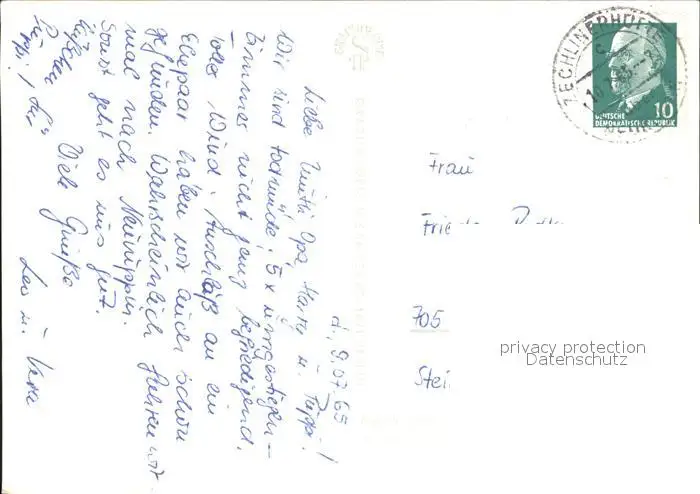 d., 9.07.65
Liebe Mutti, Opa, Harry u. Puppi!
Wir sind todmüde, 5 x umgestiegen –
Zimmer nicht ganz befriedigend,
toller Wind. Anschluß an ein
Ehepaar haben wir auch schon
gefunden. Wahrscheinlich fahren wir
mal nach Neuruppin.
Sonst geht es uns gut.
Viele Grüße
Leo u. Vera
ZECHLINERHÜTTE
10
DEUTSCHE
DEMOKRATISCHE REPUBLIK
Frau
705
privacy protection
Datenschutz